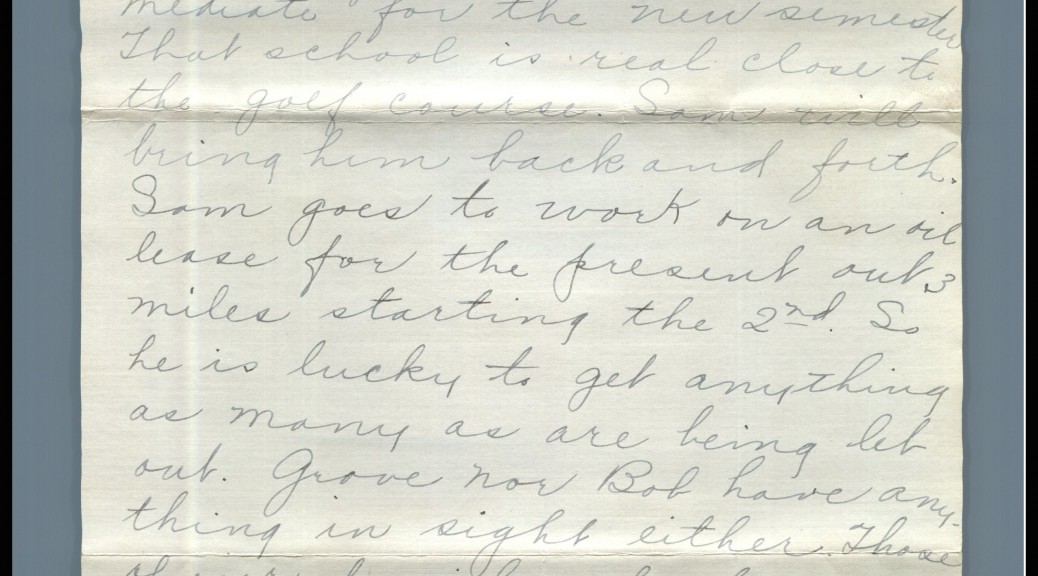 mediate for the new semester
That school is real close to
the golf course. Sam will
bring him back and forth.
Sam goes to work on an oil
lease for the present out 3
miles starting the 2nd. So
he is lucky to get anything
as many as are being let
out. Grove nor Bob have any-
thing in sight either. Those